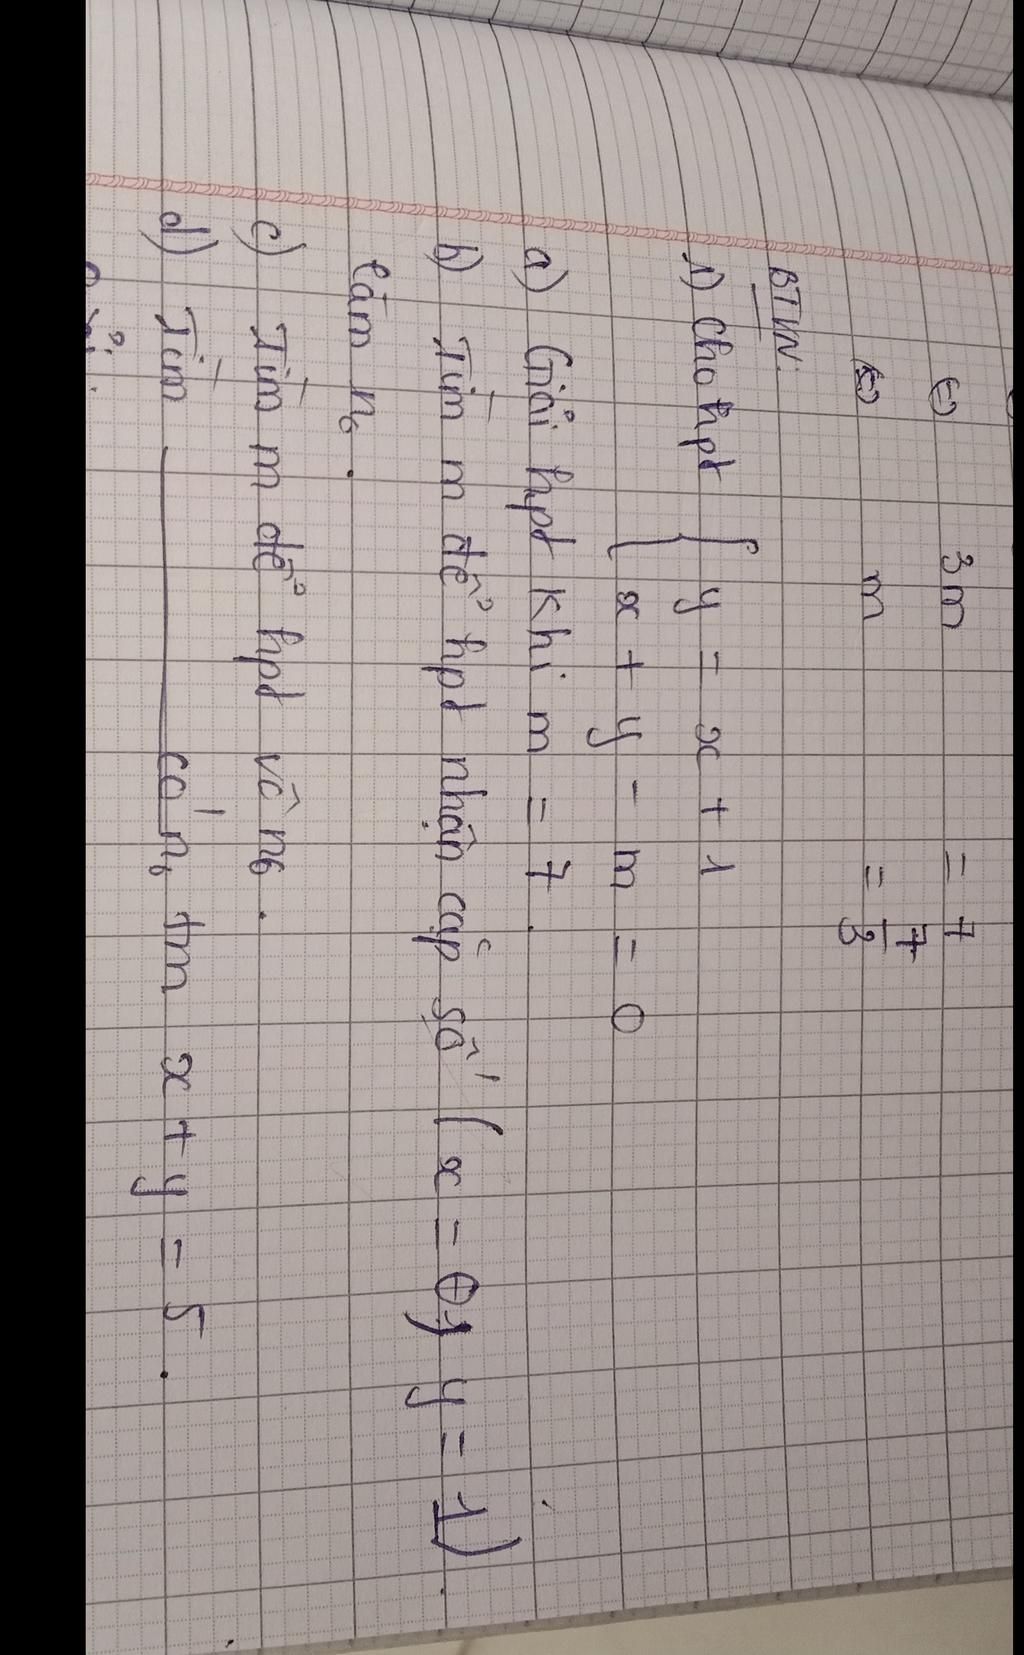 (=) 3m = 7
(=) m = 7/3
BTVN:
1) Cho hpt { y = x + 1
{ x + y - m = 0
a) Giải hpt khi m = 7.
b) Tìm m để hpt nhận cặp số (x = 0; y = 1)
làm no.
c) Tìm m để hpt vô no.
d) Tìm ——— có no tm x + y = 5.